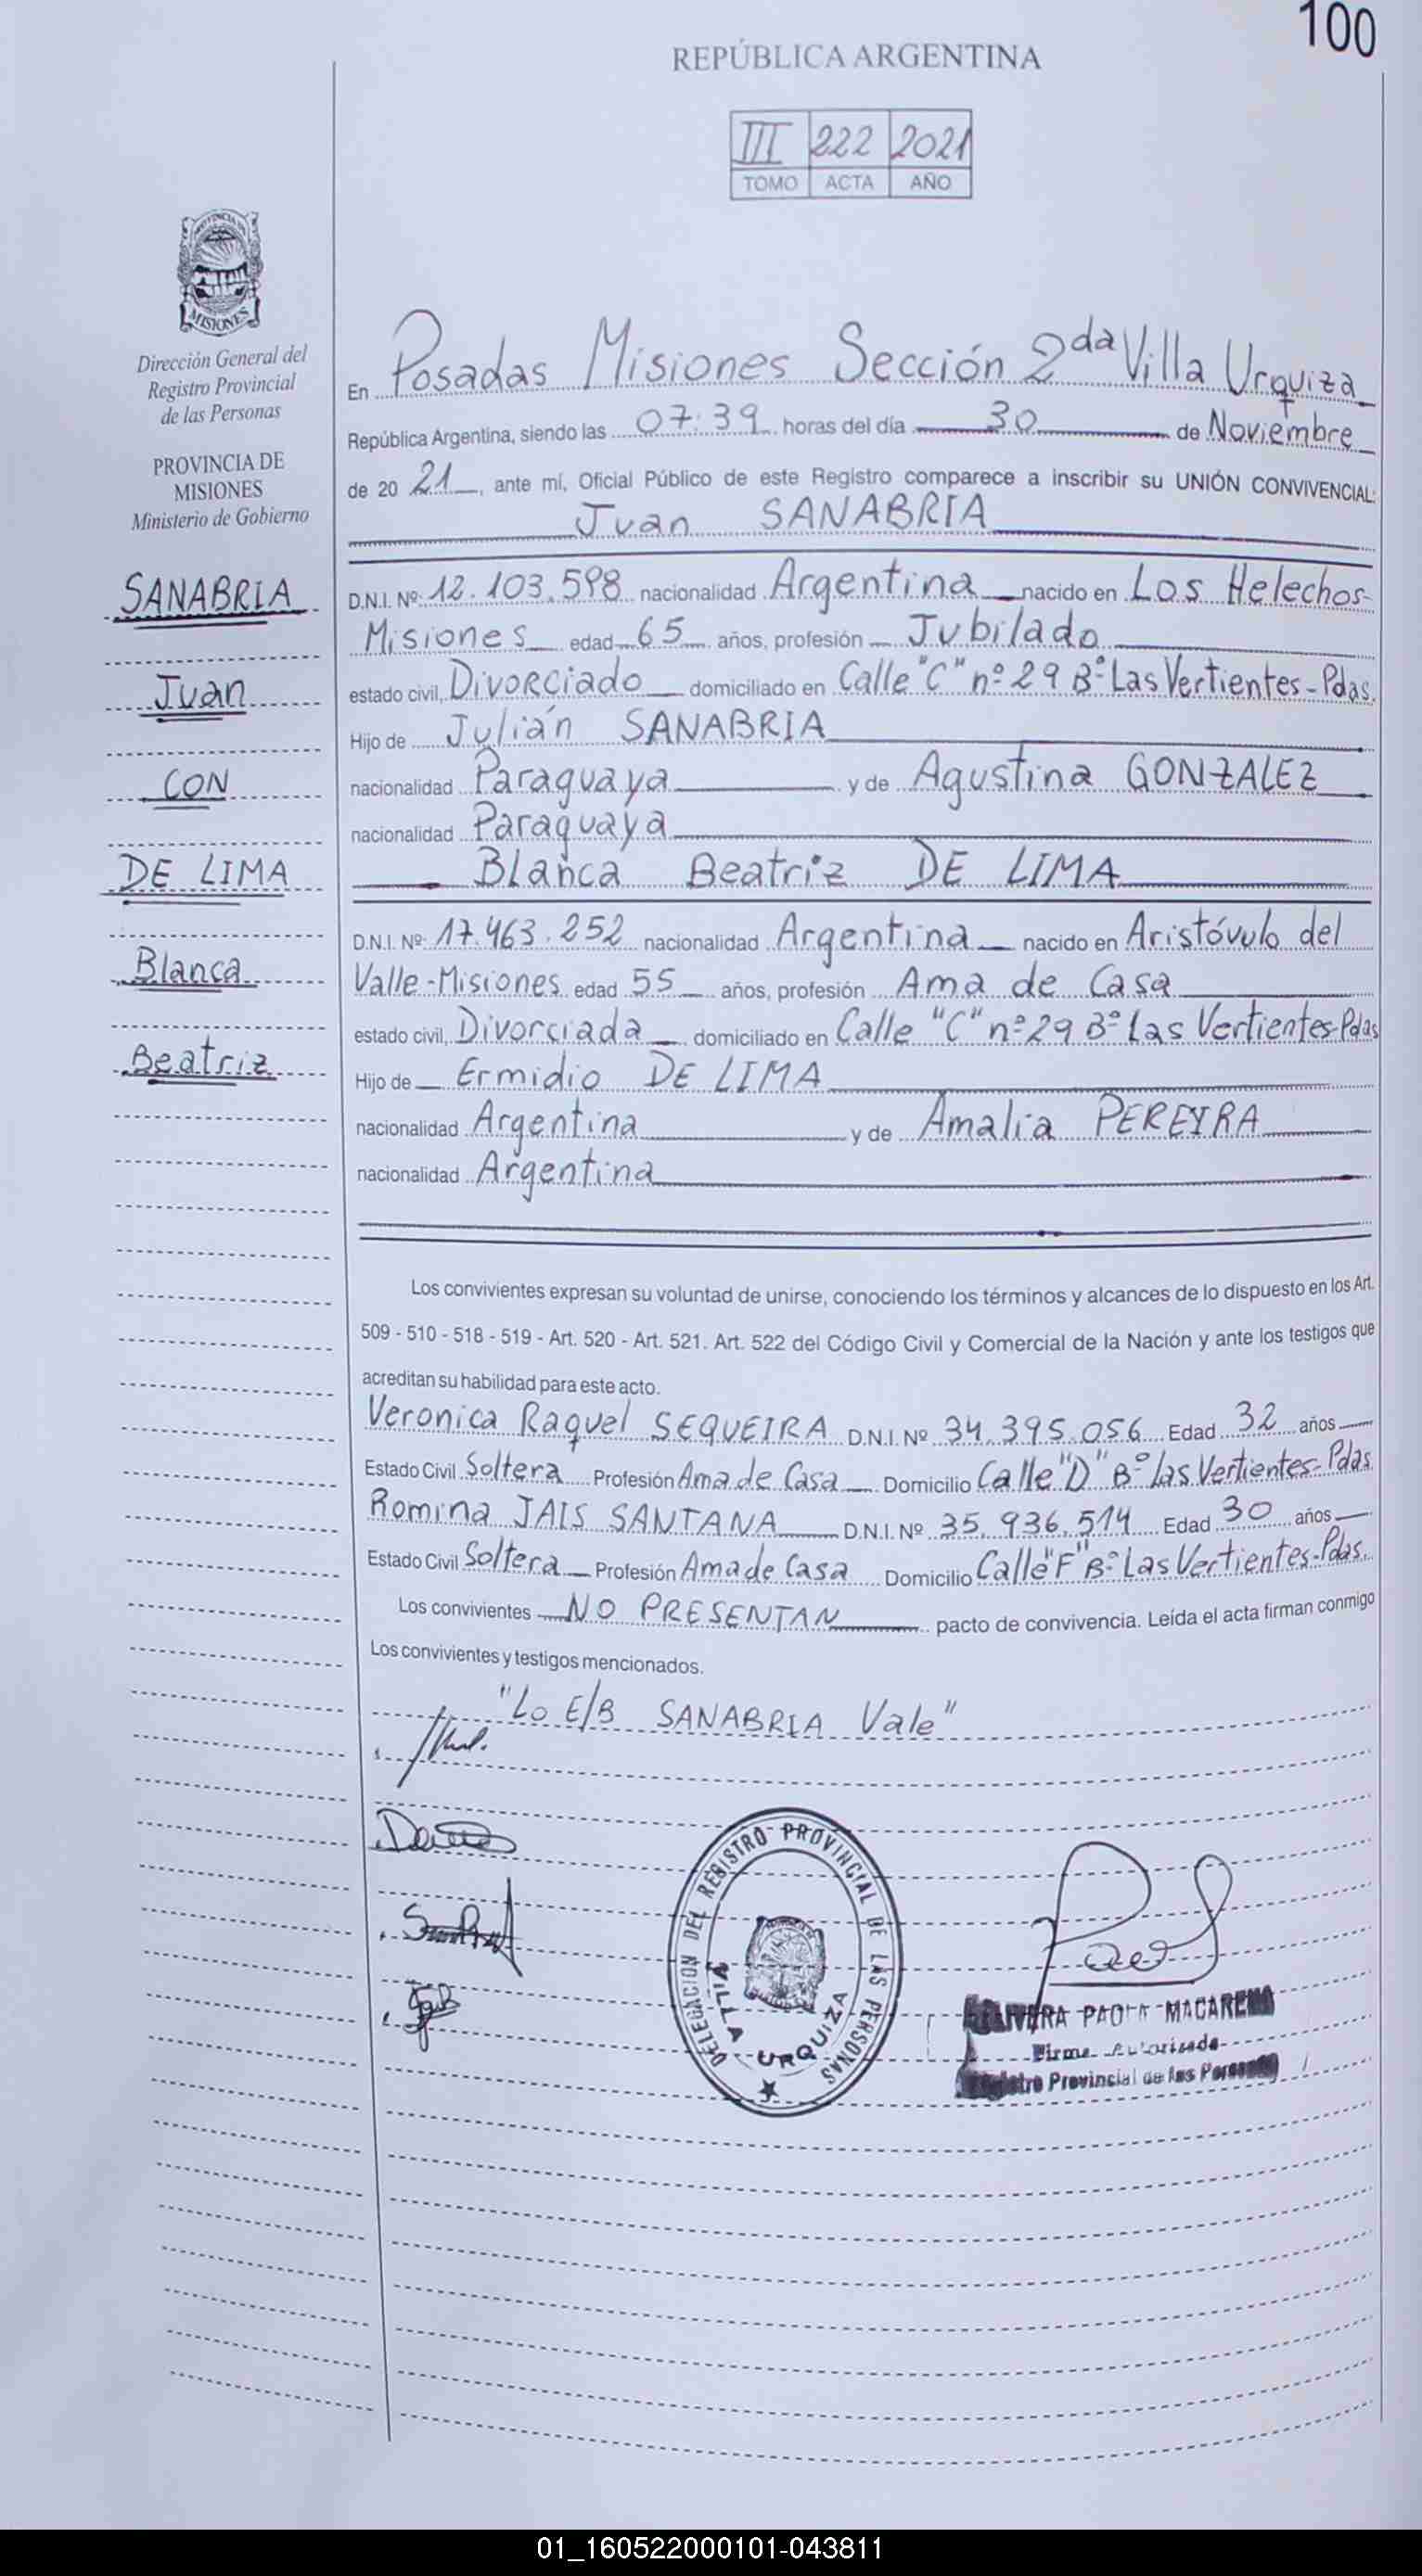 100
REPÚBLICA ARGENTINA
III 222 2021
TOMO ACTA AÑO
PROVINCIA DE
MISIONES
Dirección General del
Registro Provincial
de las Personas
PROVINCIA DE
MISIONES
Ministerio de Gobierno
SANABRIA
Juan
CON
DE LIMA
Blanca
Beatriz
En Posadas Misiones Sección 2da Villa Urquiza
República Argentina, siendo las 07:39 horas del día 30 de Noviembre
de 20 21, ante mí, Oficial Público de este Registro comparece a inscribir su UNIÓN CONVIVENCIAL:
Juan SANABRIA
D.N.I. Nº 12.103.598 nacionalidad Argentina nacido en Los Helechos-
Misiones edad 65 años, profesión Jubilado
estado civil, Divorciado domiciliado en Calle "C" nº 29 Bº Las Vertientes-Pdas.
Hijo de Julián SANABRIA
nacionalidad Paraguaya y de Agustina GONZALEZ
nacionalidad Paraguaya
Blanca Beatriz DE LIMA
D.N.I. Nº 17.463.252 nacionalidad Argentina nacido en Aristóvulo del
Valle-Misiones edad 55 años, profesión Ama de Casa
estado civil, Divorciada domiciliado en Calle "C" nº 29 Bº Las Vertientes-Pdas
Hijo de Ermidio DE LIMA
nacionalidad Argentina y de Amalia PEREYRA
nacionalidad Argentina
Los convivientes expresan su voluntad de unirse, conociendo los términos y alcances de lo dispuesto en los Art.
509 - 510 - 518 - 519 - Art. 520 - Art. 521. Art. 522 del Código Civil y Comercial de la Nación y ante los testigos que
acreditan su habilidad para este acto.
Veronica Raquel SEQUEIRA D.N.I. Nº 34.395.056 Edad 32 años
Estado Civil Soltera Profesión Ama de Casa Domicilio Calle "D" Bº Las Vertientes-Pdas.
Romina JAIS SANTANA D.N.I. Nº 35.936.514 Edad 30 años
Estado Civil Soltera Profesión Ama de Casa Domicilio Calle "F" Bº Las Vertientes-Pdas.
Los convivientes NO PRESENTAN pacto de convivencia. Leída el acta firman conmigo
Los convivientes y testigos mencionados.
"Lo E/B SANABRIA Vale"
DELEGACION DEL REGISTRO PROVINCIAL DE LAS PERSONAS
VILLA URQUIZA
PAOLA MACARENA
Firma Autorizada
Registro Provincial de las Personas
01_160522000101-043811